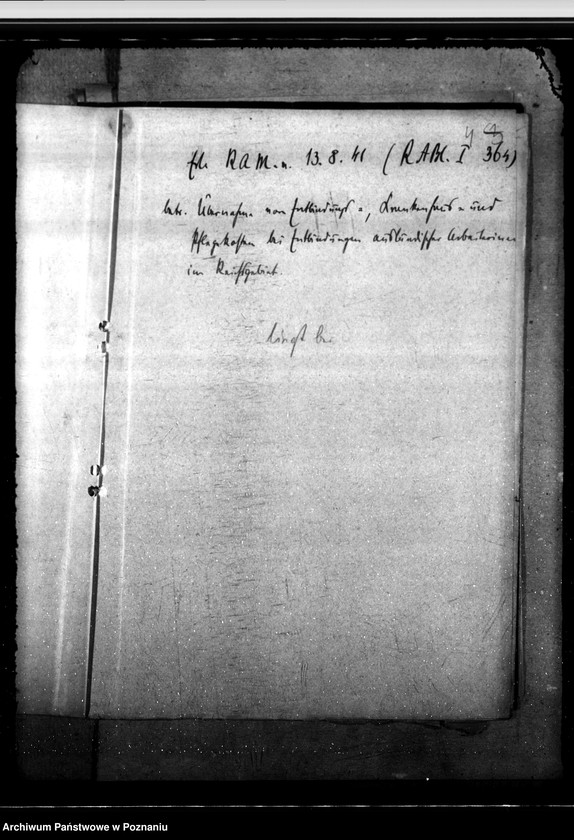 4
Erl. RAM. v. 13.8.41 (RABl. I 364)
betr. Übernahme von Entbindungs-, Krankenhaus- und
Pflegekosten bei Entbindungen ausländischer Arbeiterinnen
im Reichsgebiet.
liegt b.
Archiwum Państwowe w Poznaniu